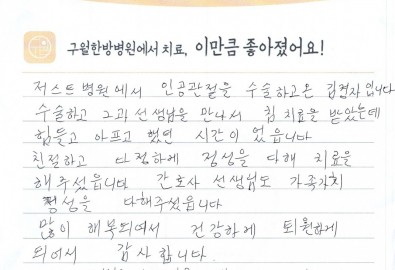 구월한방병원에서 치료, 이만큼 좋아졌어요!
저스트병원에서 인공관절을 수술하고온 김정자입니다
수술하고 그과 선생님을 만나서 침 치료을 받았는데
힘들고 아프고 했던 시간이 었읍니다
친절하고 다정하게 정성을 다해 치료을
해주셨읍니다 간호사 선생님도 가족갇치
정성을 다해주셨읍니다
많이 해복되여서 건강하게 퇴원하게
되어서 감사합니다.